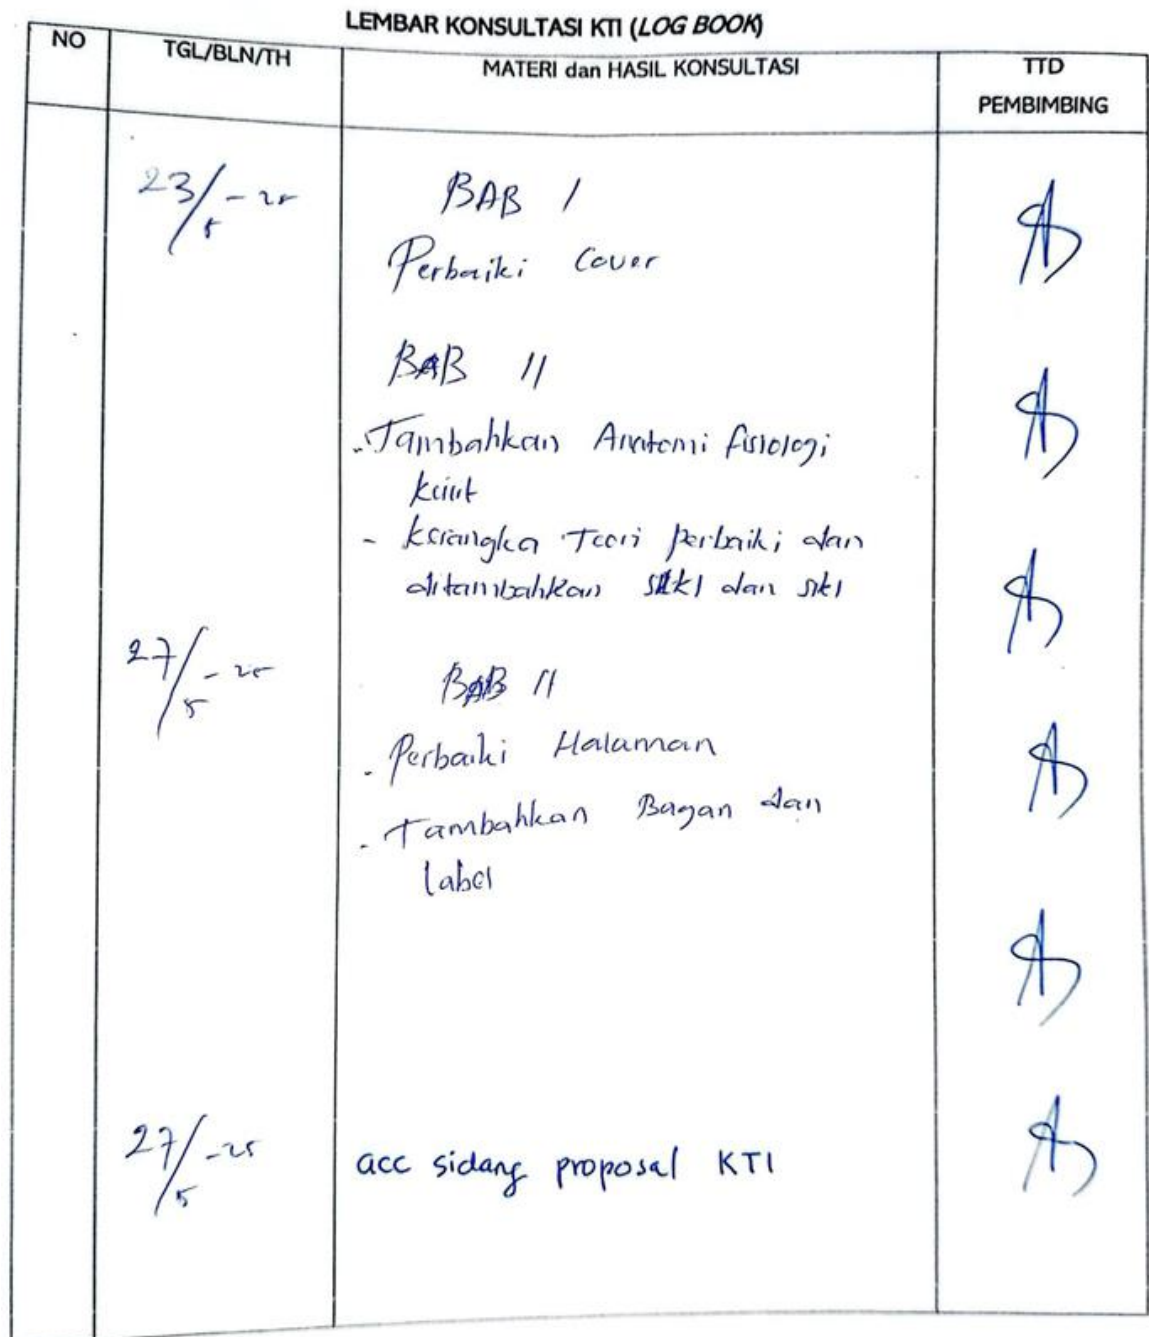 LEMBAR KONSULTASI KTI (LOG BOOK)
NO TGL/BLN/TH MATERI dan HASIL KONSULTASI TTD
PEMBIMBING
23/5-25 BAB I
Perbaiki Cover
BAB II
- Tambahkan Anatomi fisiologi
kulit
- kerangka Teori perbaiki dan
ditambahkan dan siki
27/5-25 BAB II
- Perbaiki Halaman
- Tambahkan Bagan dan
label
27/5-25 acc sidang proposal KTI